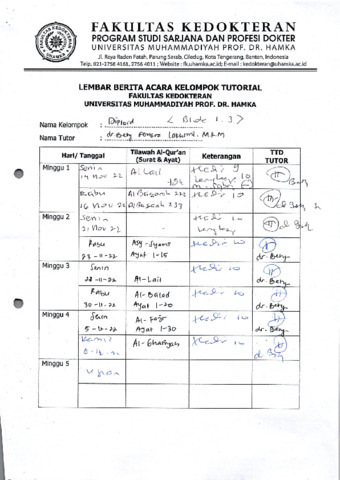 FAKULTAS KEDOKTERAN
PROGRAM STUDI SARJANA DAN PROFESI DOKTER
UNIVERSITAS MUHAMMADIYAH PROF. DR. HAMKA
Jl. Raya Raden Patah, Parung Serab, Ciledug, Kota Tangerang, Banten, Indonesia
Telp. 021-2756 4168, 2756 4011 ; Website : fk.uhamka.ac.id; E-mail : kedokteran@uhamka.ac.id
LEMBAR BERITA ACARA KELOMPOK TUTORIAL
FAKULTAS KEDOKTERAN
UNIVERSITAS MUHAMMADIYAH PROF. DR. HAMKA
Nama Kelompok :
Nama Tutor : dr. M.K.M
Hari/ Tanggal Tilawah Al-Qur'an (Surat & Ayat) Keterangan TTD TUTOR
Minggu 1 Senin 14 Nov 22 Al Lail Hadir 9
Rabu 16 Nov 22 Hadir 10
Minggu 2 Senin 21 Nov 22 Hadir 10
Rabu 23-11-22 Asy-Syams Ayat 1-15 Hadir 10 dr. Bety
Minggu 3 Senin 28-11-22 Al-Lail Hadir 10 dr. Bety
Rabu 30-11-22 Al-Balad Ayat 1-20 Hadir 10 dr. Bety
Minggu 4 Senin 5-12-22 Al-Fajr Ayat 1-30 Hadir 10 dr. Bety
Al-Ghasiyah Hadir 10
Minggu 5